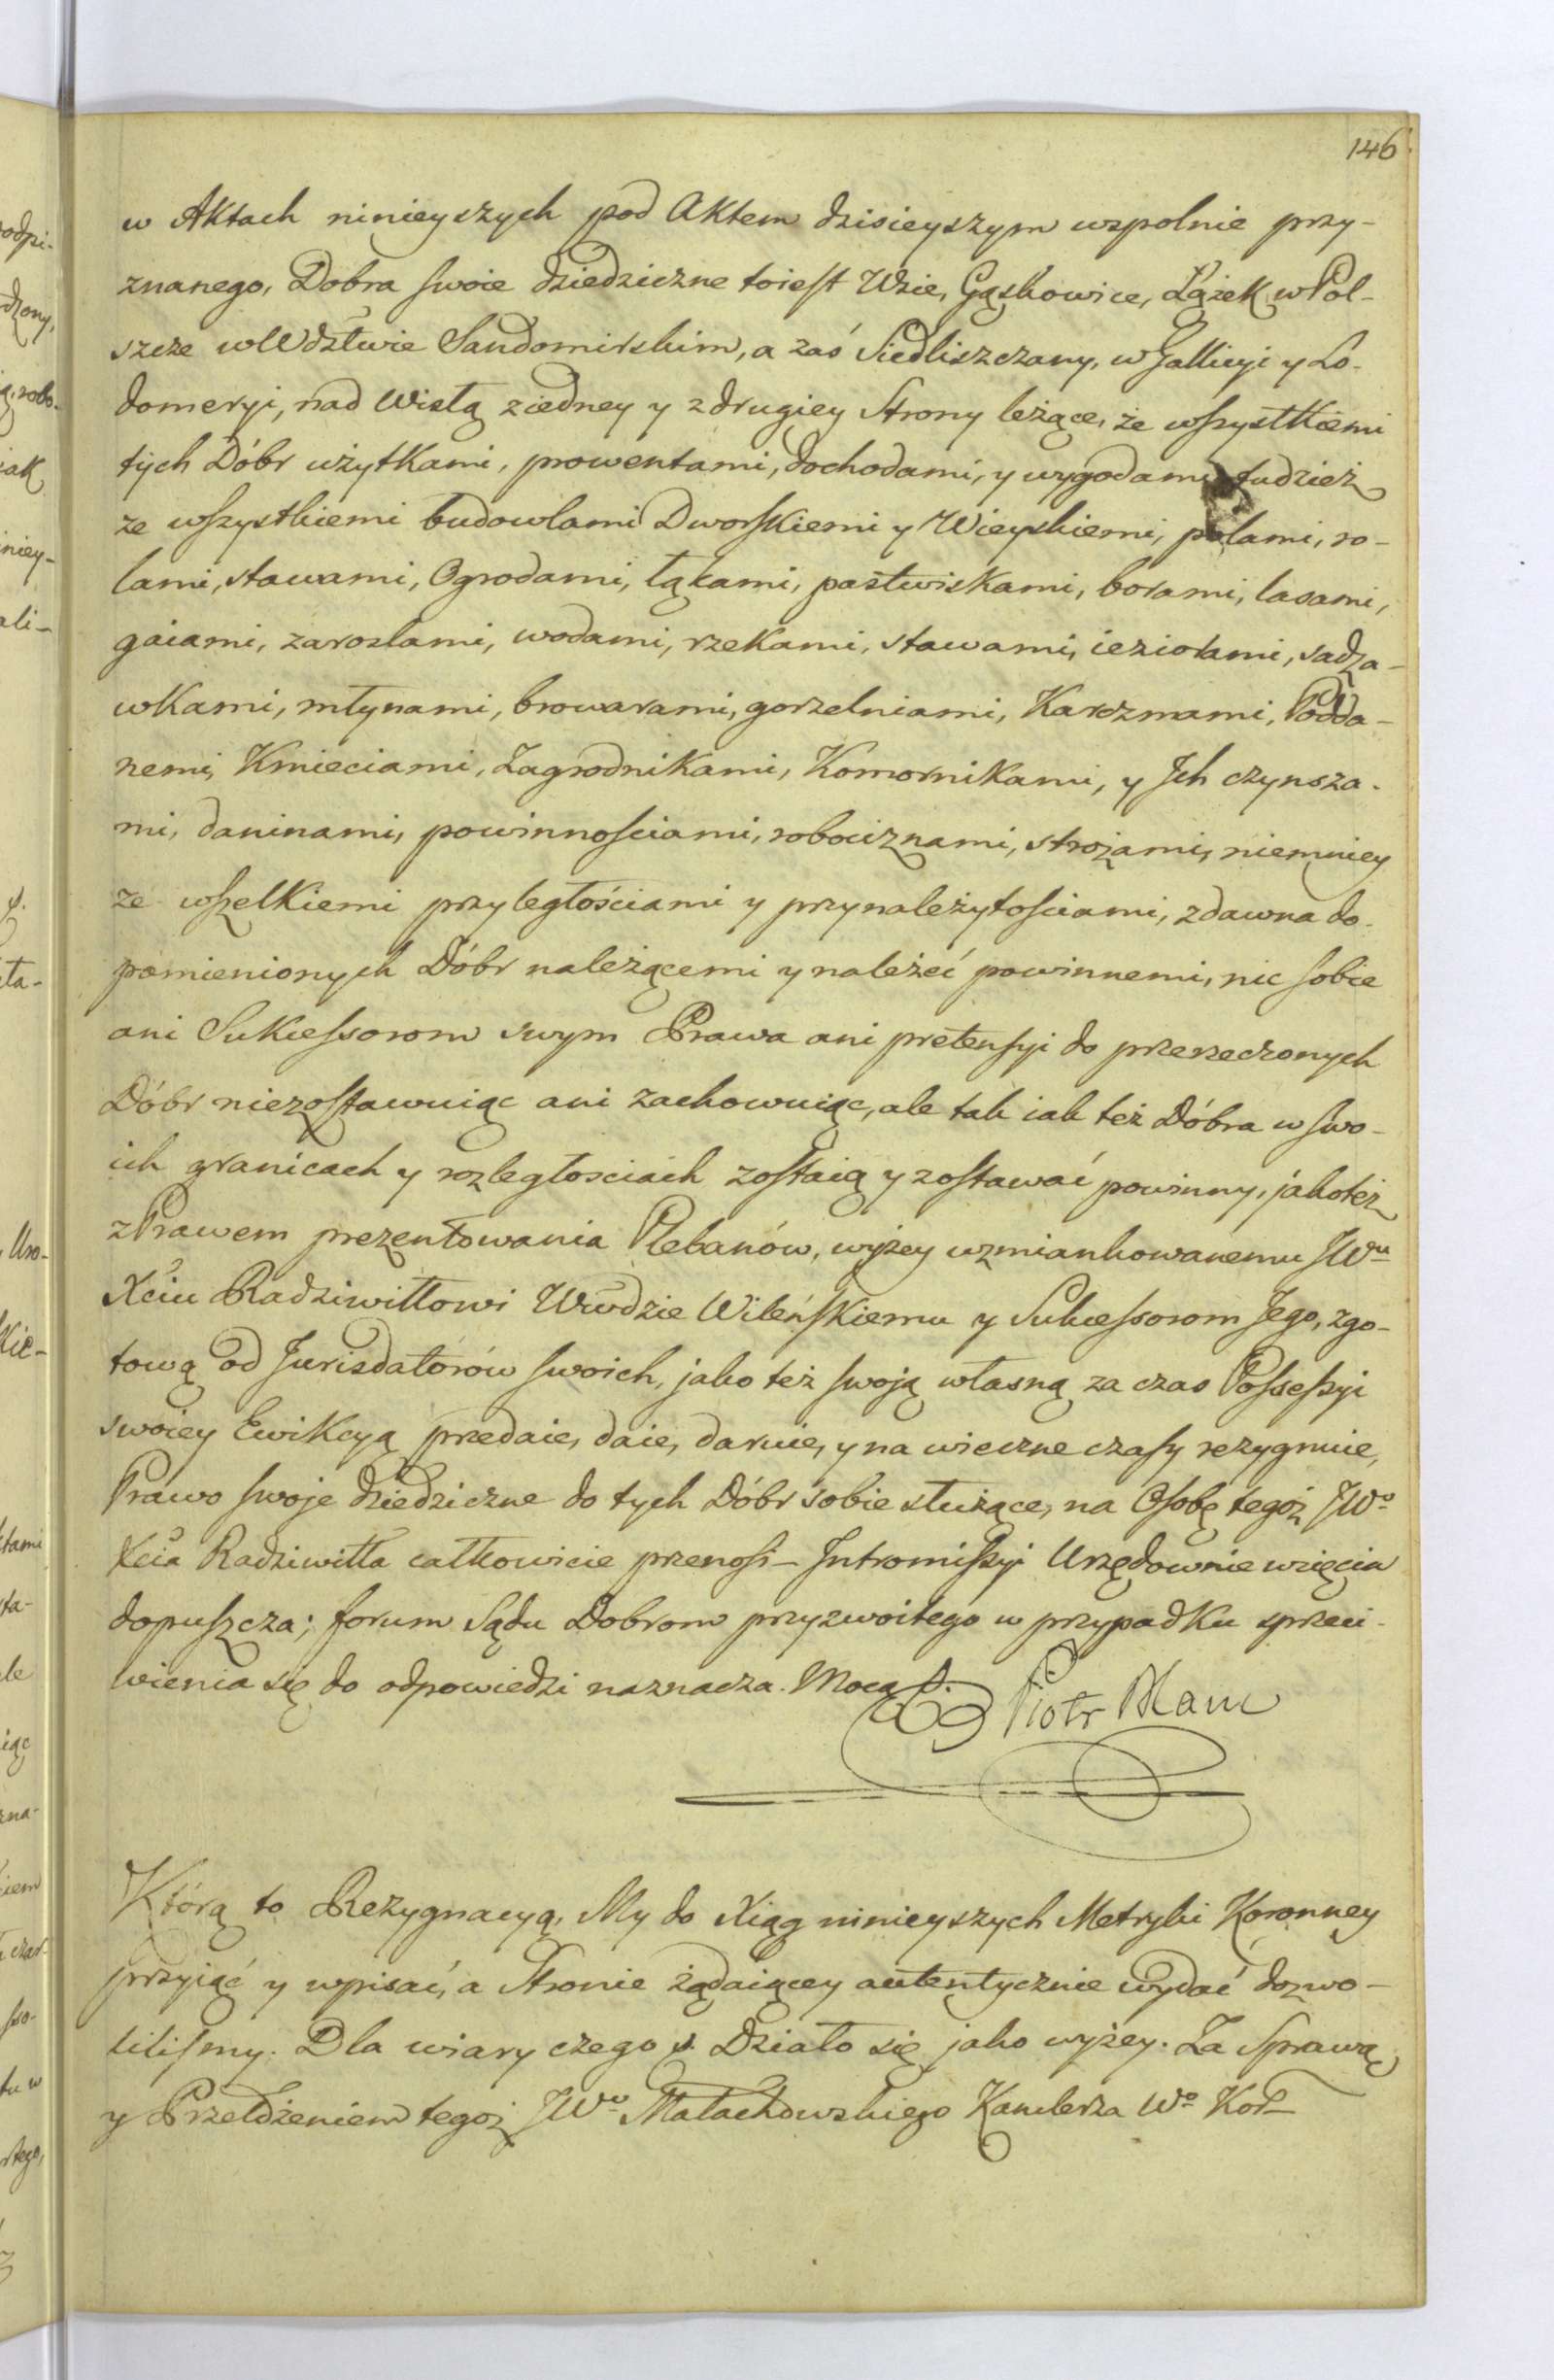 146.
w Aktach ninieyszych pod Aktem dzisieyszym wspolnie przy-
znanego, Dobra swoie dziedziczne toiest Wsie, Gąskowice, Łążek w Pol-
szcze w Wdztwie Sandomirskim, a zaś Siedliszczany, w Gallicyi y Lo-
domeryi, nad Wisłą z iedney y z drugiey Strony leżące, ze wszystkiemi
tych Dóbr użytkami, prowentami, dochodami, y wygodami tudzież
ze wszystkiemi budowlami Dworskiemi y Wieyskiemi, polami, ro-
lami, stawami, Ogrodami, łąkami, pastwiskami, borami, lasami,
gaiami, zaroslami, wodami, rzekami, stawami, ieziorami, sadza-
wkami, młynami, browarami, gorzelniami, Karczmami, Podda-
nemi, Kmieciami, Zagrodnikami, Komornikami, y Jch czynsza-
mi, daninami, powinnościami, robociznami, strożami, niemniey
ze wszelkiemi przyległościami y przynależytościami, zdawna do
pomienionych Dóbr należącemi y należeć powinnemi, nic sobie
ani Sukcessorom swym Prawa ani pretensyi do przerzeczonych
Dóbr niezostawuiąc ani zachowuiąc, ale tak iak też Dobra w swo-
ich granicach y rozległosciach zostaią y zostawać powinny, jakoteż
z Prawem prezentowania Plebanów, wyżey wzmiankowanemu JWu
Xciu Radziwiłłowi Wwdzie Wileńskiemu y Sukcessorom Jego, z go-
tową od Jurisdatorów swoich, jako też swoją własną za czas Possessyi
swoiey Ewikcyą przedaie, daie, daruie, y na wieczne czasy rezygnuie,
Prawo swoje dziedziczne do tych Dóbr sobie służące, na Osobę tegoż JWo
Xcia Radziwiłła całkowicie przenosi – Jntromissyi Urzędownie wzięcia
dopuszcza; forum Sądu Dobrom przyzwoitego w przypadku sprzeci-
wienia się do odpowiedzi naznacza. Mocą
Piotr Blanc
Którą to Rezygnacyą, My do Xiąg ninieyszych Metryki Koronney
przyiąć y wpisać, a Stronie żądaiącey autentycznie wydać dozwo-
lilismy. Dla wiary czego Działo się jako wyżey. Za Sprawą
y Przełożeniem tegoż JWo Małachowskiego Kanclerza Wo Kor